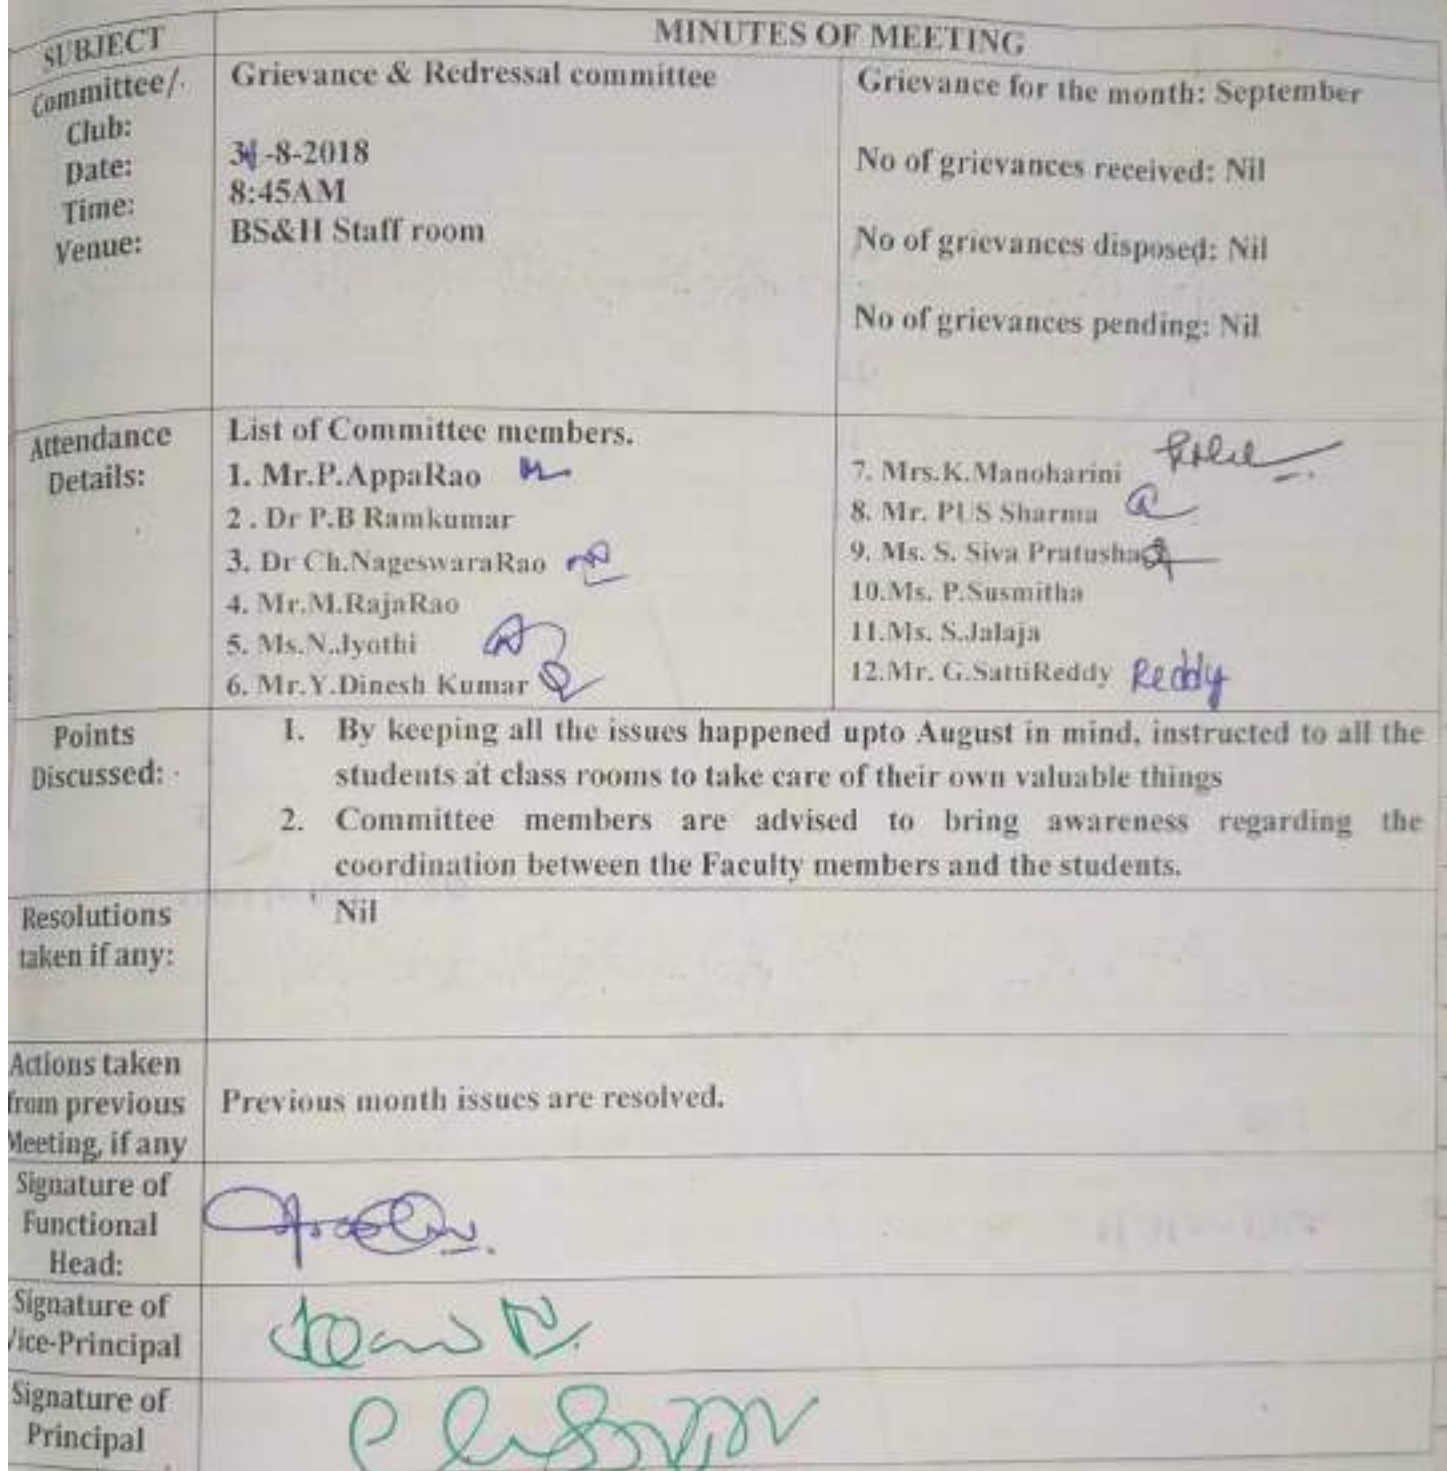 SUBJECT
MINUTES OF MEETING
Committee/
Club:
Date:
Time:
Venue:
Grievance & Redressal committee
-8-2018
8:45AM
BS&H Staff room
Grievance for the month: September
No of grievances received: Nil
No of grievances disposed: Nil
No of grievances pending: Nil
Attendance
Details:
List of Committee members.
1. Mr.P.AppaRao
2 . Dr P.B Ramkumar
3. Dr Ch.NageswaraRao
4. Mr.M.RajaRao
5. Ms.N.Jyothi
6. Mr.Y.Dinesh Kumar
7. Mrs.K.Manoharini
8. Mr. PUS Sharma
9. Ms. S. Siva Pratusha
10.Ms. P.Susmitha
11.Ms. S.Jalaja
12.Mr. G.SattiReddy Reddy
Points
Discussed:
1. By keeping all the issues happened upto August in mind, instructed to all the
students at class rooms to take care of their own valuable things
2. Committee members are advised to bring awareness regarding the
coordination between the Faculty members and the students.
Resolutions
taken if any:
Nil
Actions taken
from previous
Meeting, if any
Previous month issues are resolved.
Signature of
Functional
Head:
Signature of
Vice-Principal
Signature of
Principal